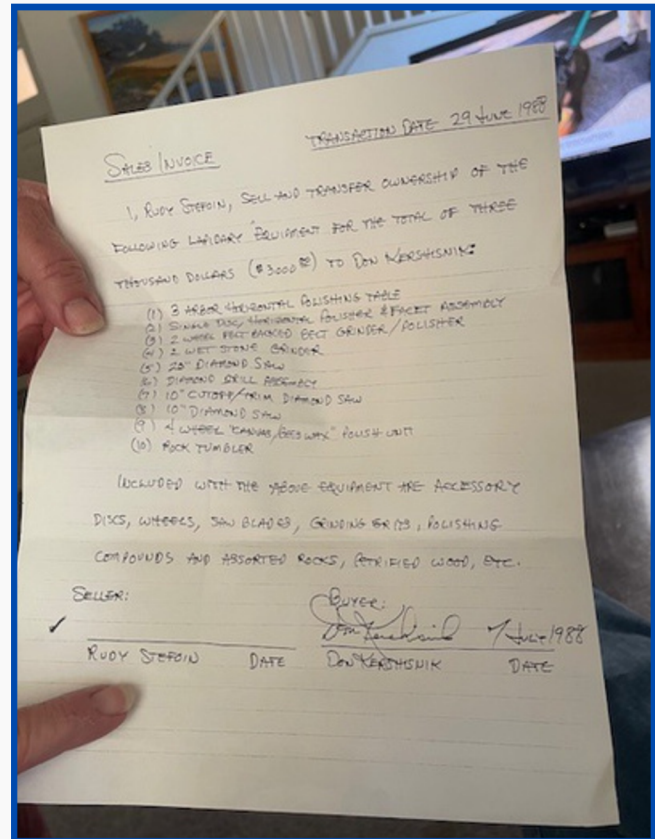 SALES INVOICE
TRANSACTION DATE 29 JUNE 1988
I, RUDY STEFOIN, SELL AND TRANSFER OWNERSHIP OF THE
FOLLOWING LAPIDARY EQUIPMENT FOR THE TOTAL OF THREE
THOUSAND DOLLARS ($3000 00) TO DON KERSHSNIK:
(1) 3 ARBOR HORIZONTAL POLISHING TABLE
(2) SINGLE DISC, HORIZONTAL POLISHER & FACET ASSEMBLY
(3) 2 WHEEL FELT BACKED BELT GRINDER/POLISHER
(4) 2 WET STONE GRINDER
(5) 20" DIAMOND SAW
(6) DIAMOND DRILL ASSEMBLY
(7) 10" CUTOFF/TRIM DIAMOND SAW
(8) 10" DIAMOND SAW
(9) 4 WHEEL "CANVAS/GEO WAX" POLISH UNIT
(10) ROCK TUMBLER
INCLUDED WITH THE ABOVE EQUIPMENT ARE ACCESSORY
DISCS, WHEELS, SAW BLADES, GRINDING GRITS, POLISHING
COMPOUNDS AND ASSORTED ROCKS, PETRIFIED WOOD, ETC.
SELLER:
BUYER:
Don Kershsnik 7 JULY 1988
RUDY STEFOIN DATE DON KERSHSNIK DATE